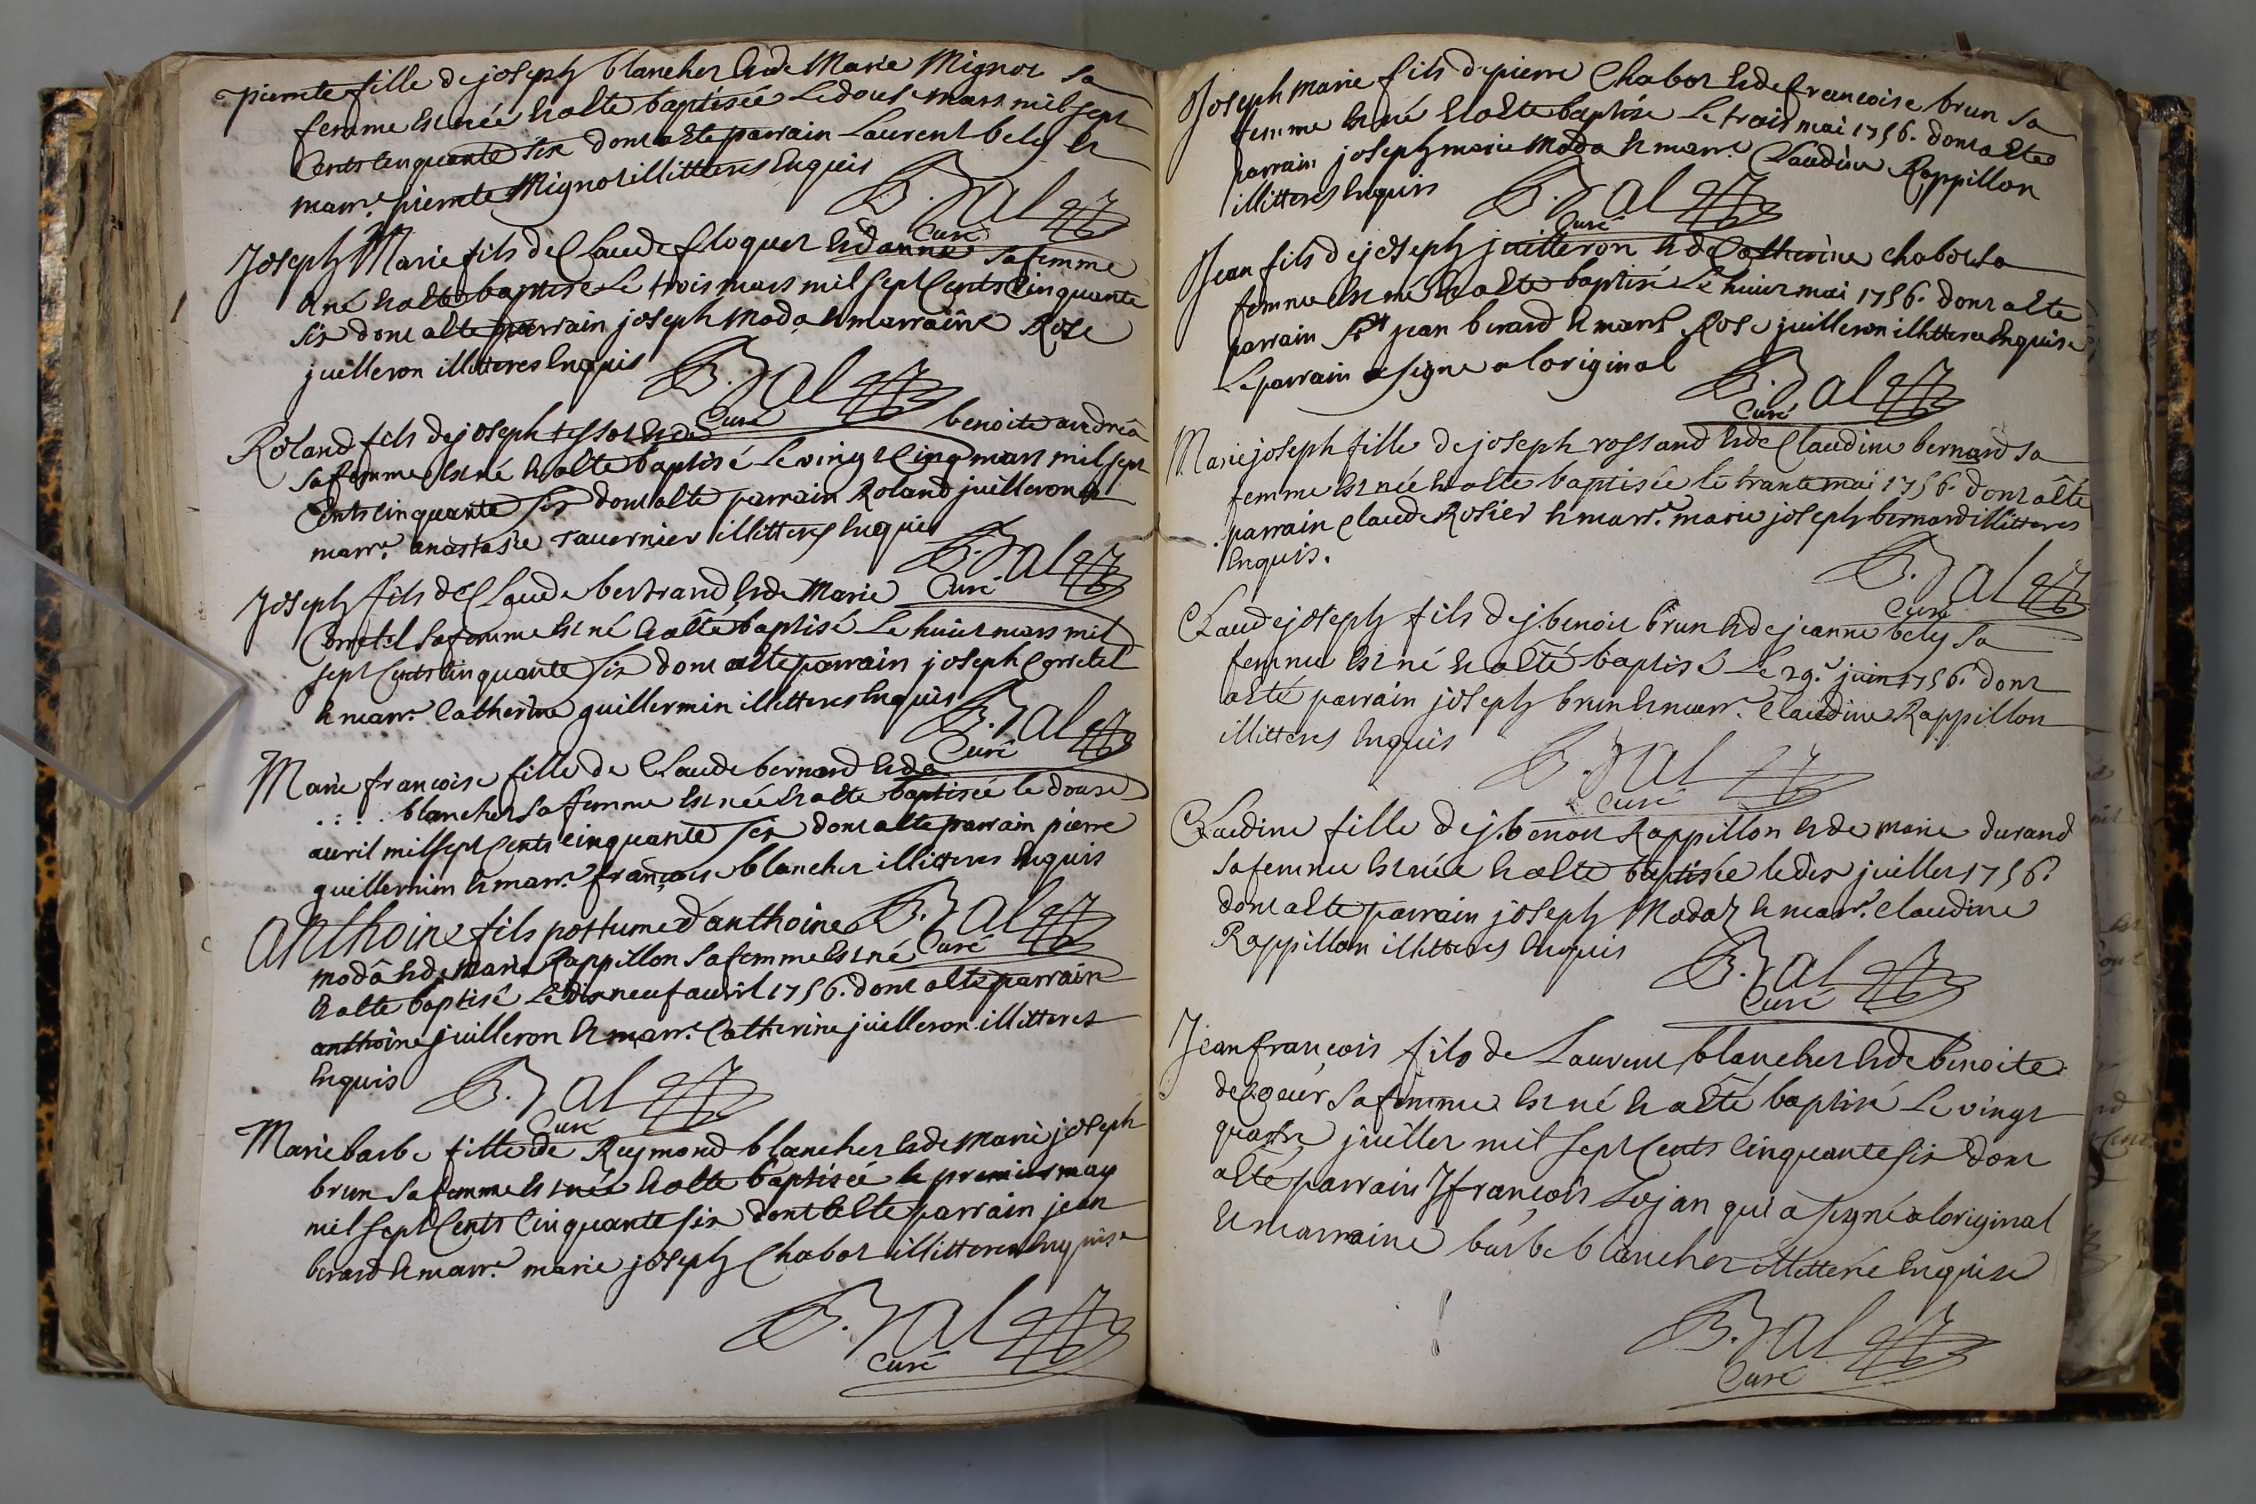 pierrette fille de joseph blanchet et de Marie Mignot sa
femme est née et a été baptisée Le douse mars mil sept
Cents cinquante six dont a été parrain Laurent bely et
marr.e pierrette Mignot illitteres Enquis
B. Jal
Curé
Joseph Marie fils de Claude floquet et d'anne sa femme
est né et a été baptisé Le trois mars mil sept Cents Cinquante
six dont a été parrain joseph Moda et marraine Rose
juilleron illitteres Enquis
B. Jal
Curé
Roland fils de joseph tissot et de benoite andréa
sa femme est né et a été baptisé Le vingt Cinq mars mil sept
Cents cinquante six dont a été parrain Roland juilleron et
marr.e anastasie tavernier illitteres Enquis
B. Jal
Curé
Joseph fils de Claude bertrand et de Marie
Cornetel sa femme est né et a été baptisé Le huict mars mil
sept Cents cinquante six dont a été parrain joseph Cornetel
et marr.e Catherine guillermin illitteres Enquis
B. Jal
Curé
Marie francoise fille de Claude bernard et de
.... blanchet sa femme est née et a été baptisée le douse
avril mil sept Cents cinquante six dont a été parrain pierre
guillermin et marr.e francoise blanchet illitteres Enquis
B. Jal
Curé
anthoine fils postume d'anthoine
modâ et de Marie Rappillon sa femme est né
et a été baptisé Le dix neuf avril 1756. dont a été parrain
anthoine juilleron et marr.e Catherine juilleron illitteres
Enquis
B. Jal
Curé
Marie barbe fille de Reymond blanchet et de Marie joseph
brun sa femme est née et a été baptisée le premier may
mil sept Cents Cinquante six dont a été parrain jean
berard et marr.e marie joseph Chabot illitteres Enquise
B. Jal
Curé
Joseph marie fils de pierre Chabot et de francoise brun sa
femme est né et a été baptisé Le trois mai 1756. dont a été
parrain joseph marie Moda et marr.e Claudine Rappillon
illitteres Enquis
B. Jal
Curé
Jean fils de joseph juilleron et de Catherine chabot sa
femme est né et a été baptisé Le huict mai 1756. dont a été
parrain Sr jean berard et marr.e Rose juilleron illittere Enquise
Le parrain a signé a loriginal
B. Jal
Curé
Marie joseph fille de joseph rossand et de Claudine bernard sa
femme est née et a été baptisée le trante mai 1756. dont a été
parrain Claude Rosier et marr.e marie joseph bernard illitteres
Enquis.
B. Jal
Curé
Claude joseph fils de j. benoit brun et de jeanne bely sa
femme est né et a été baptisé Le 29.e juin 1756. dont
a été parrain joseph brun et marr.e Claudine Rappillon
illitteres Enquis
B. Jal
Curé
Claudine fille de j. benoit Rappillon et de marie durand
sa femme est née et a été baptisée le dix juillet 1756.
dont a été parrain joseph Modaz et marr.e claudine
Rappillon illitteres Enquis
B. Jal
Curé
Jean francois fils de Laurent blanchet et de benoite
deCoeur sa femme est né et a été baptisé Le vingt
quatre juillet mil sept Cents Cinquante six dont
a été parrain J françois Lojan qui a signé a loriginal
et marraine barbe blanchet illitterée Enquise
B. Jal
Curé